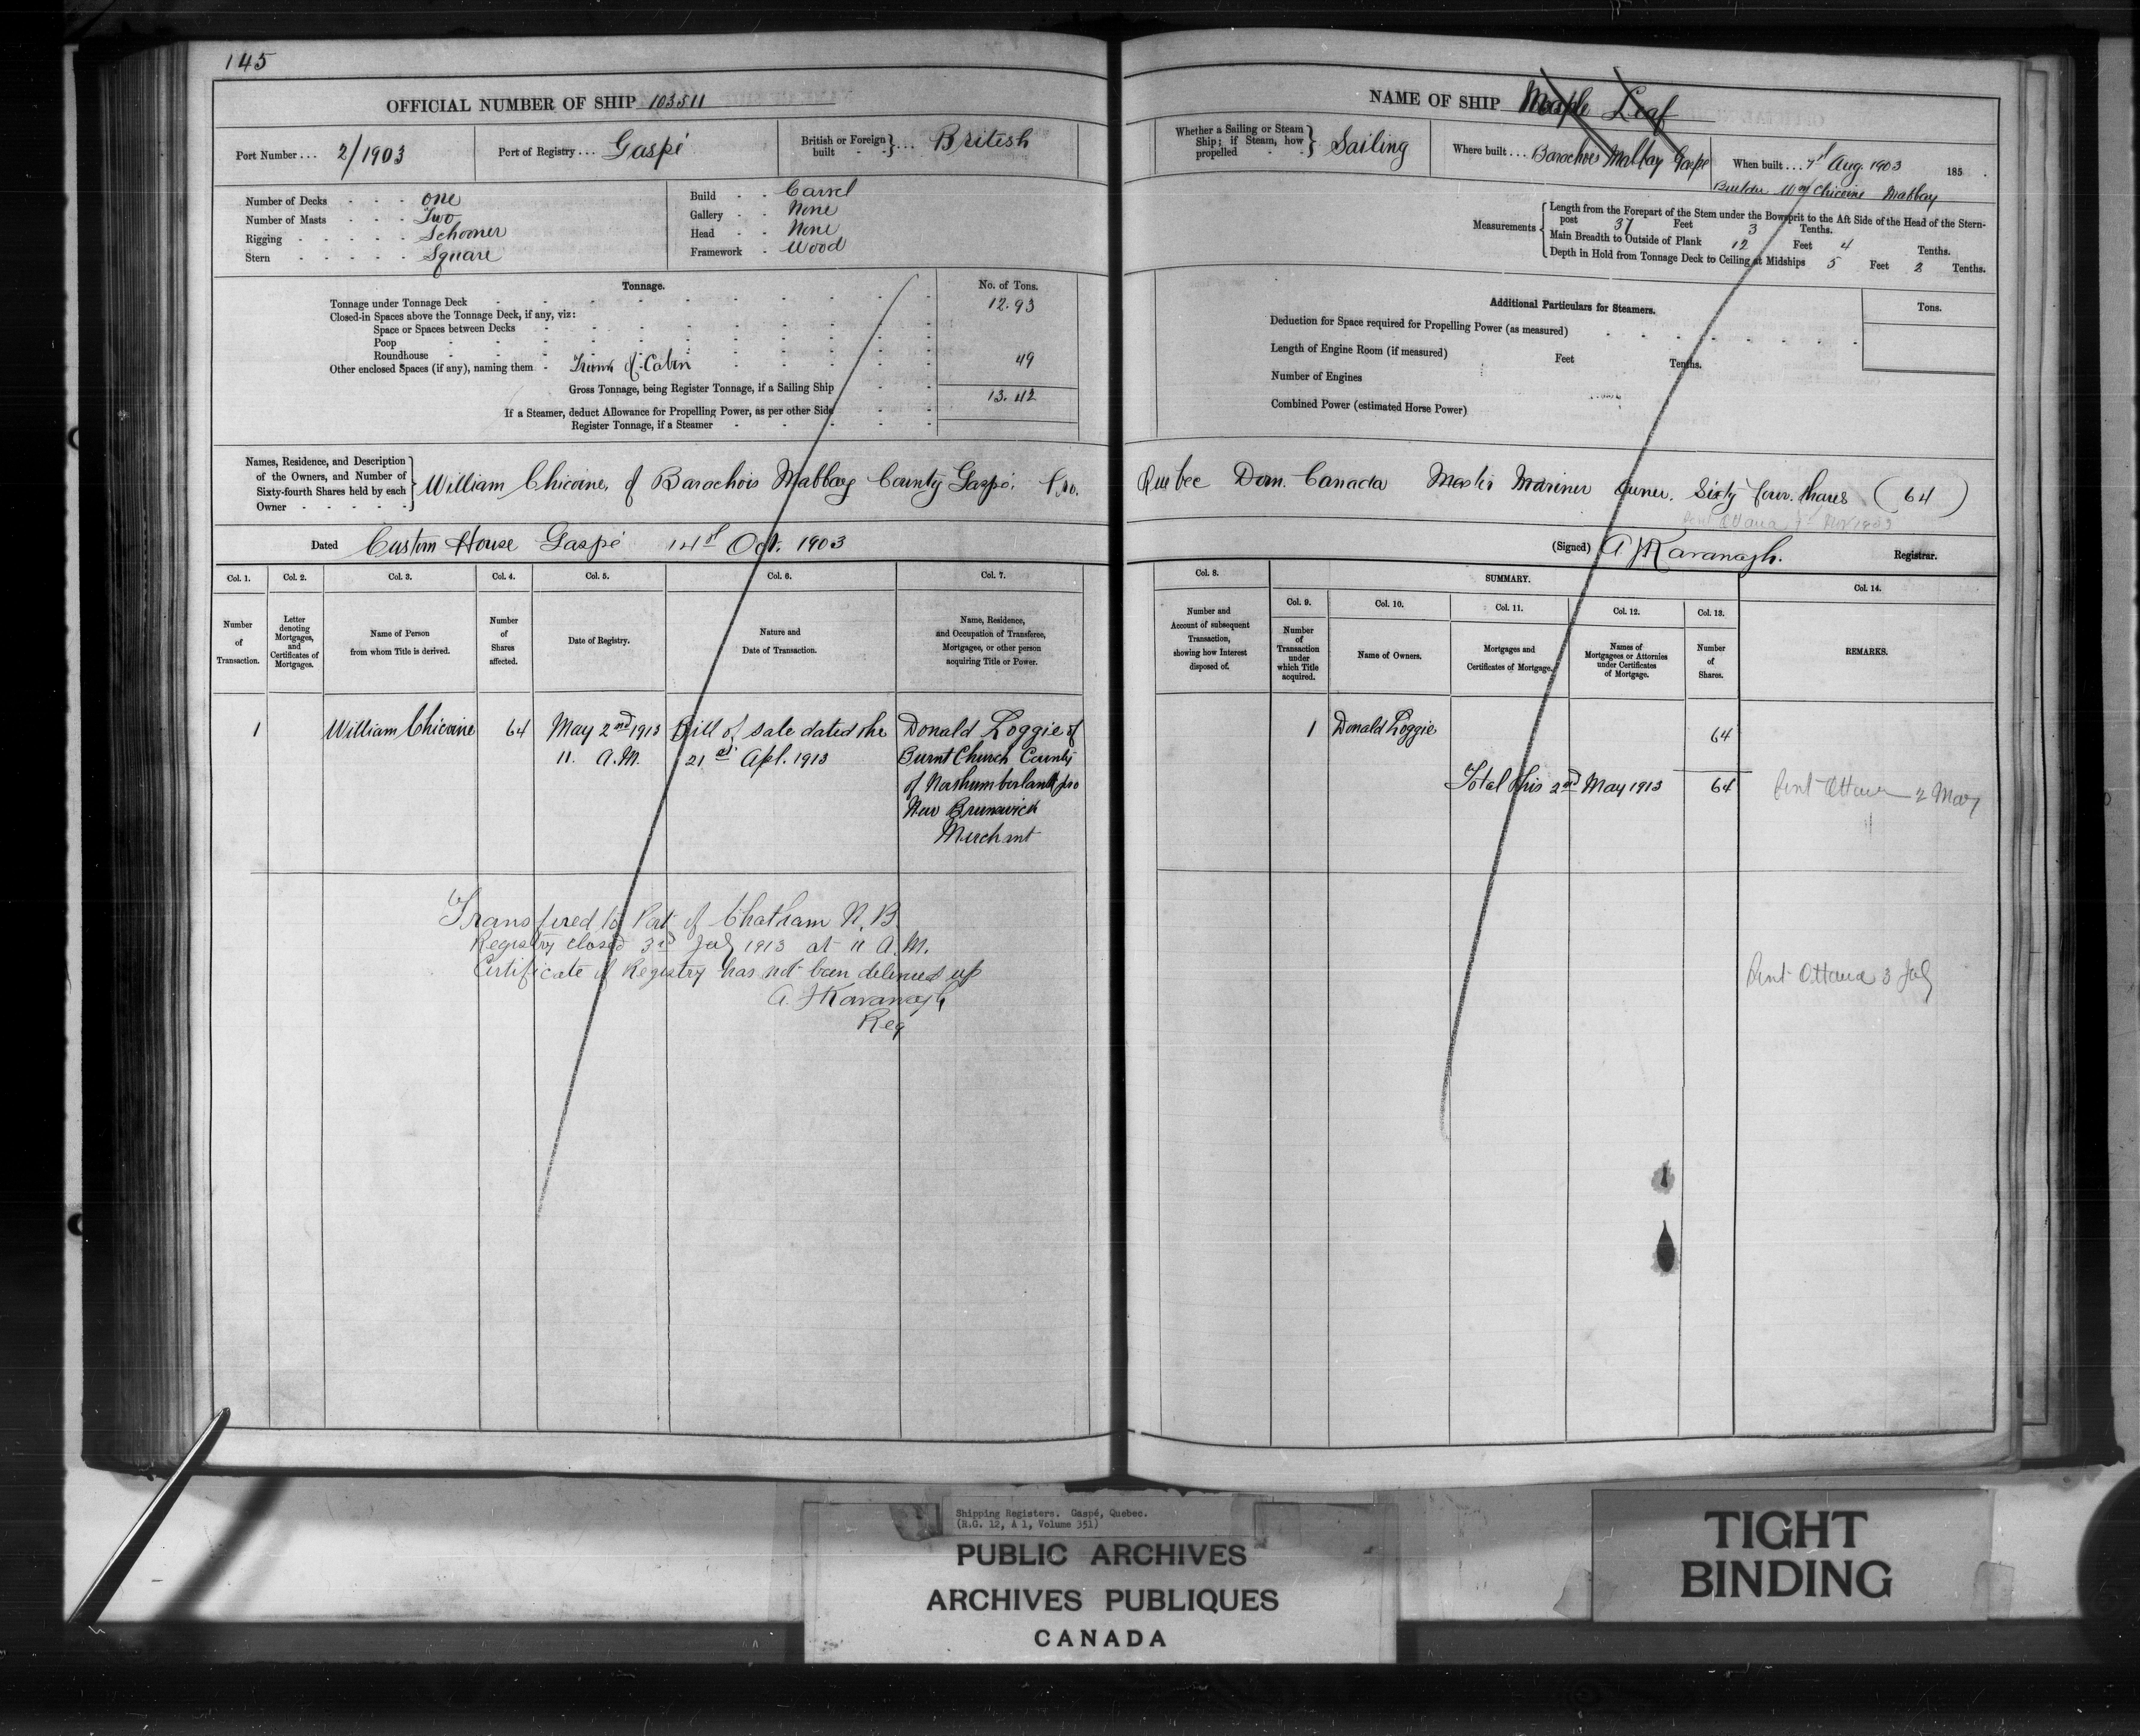 145
OFFICIAL NUMBER OF SHIP 103511
Port Number ... 2/1903
Port of Registry ... Gaspé
British or Foreign built } ... British
Number of Decks - - - one
Number of Masts - - - Two
Rigging - - - - - Schooner
Stern - - - - - Square
Build - - Carvel
Gallery - - None
Head - - None
Framework - Wood
Tonnage.
No. of Tons.
Tonnage under Tonnage Deck 12.93
Closed-in Spaces above the Tonnage Deck, if any, viz:
Space or Spaces between Decks
Poop
Roundhouse
Other enclosed Spaces (if any), naming them - Trunk of Cabin 49
Gross Tonnage, being Register Tonnage, if a Sailing Ship 13.42
If a Steamer, deduct Allowance for Propelling Power, as per other Side
Register Tonnage, if a Steamer
Names, Residence, and Description
of the Owners, and Number of
Sixty-fourth Shares held by each
Owner
William Chicoine, of Barachois Malbay County Gaspé. Pro.
Dated Custom House Gaspé 14th Oct. 1903
Col. 1.
Number
of
Transaction.
Col. 2.
Letter
denoting
Mortgages,
and
Certificates of
Mortgages.
Col. 3.
Name of Person
from whom Title is derived.
Col. 4.
Number
of
Shares
affected.
Col. 5.
Date of Registry.
Col. 6.
Nature and
Date of Transaction.
Col. 7.
Name, Residence,
and Occupation of Transferee,
Mortgagee, or other person
acquiring Title or Power.
1
William Chicoine
64
May 2nd 1913
11. A.M.
Bill of sale dated the
21st Apl. 1913
Donald Loggie of
Burnt Church County
of Northumberland pro
New Brunswick
Merchant
Transfired to Port of Chatham N.B.
Registry closed 3rd July 1913 at 11 A.M.
Certificate of Registry has not been delivered up
A. J Kavanagh
Reg
NAME OF SHIP Maple Leaf
Whether a Sailing or Steam
Ship; if Steam, how
propelled
Sailing
Where built ... Barachois Malbay Gaspé
When built ... Aug. 1903 185
Builder Wm Chicoine Malbay
Measurements
Length from the Forepart of the Stem under the Bowsprit to the Aft Side of the Head of the Stern-
post 37 Feet 3 Tenths.
Main Breadth to Outside of Plank 12 Feet 4 Tenths.
Depth in Hold from Tonnage Deck to Ceiling at Midships 5 Feet 2 Tenths.
Additional Particulars for Steamers.
Tons.
Deduction for Space required for Propelling Power (as measured)
Length of Engine Room (if measured) Feet Tenths.
Number of Engines
Combined Power (estimated Horse Power)
Quebec Dom. Canada Master Mariner Owner. Sixty four shares (64)
Sent Ottawa Nov 1903
(Signed) A J Kavanagh. Registrar.
Col. 8.
Number and
Account of subsequent
Transaction,
showing how Interest
disposed of.
SUMMARY.
Col. 9.
Number
of
Transaction
under
which Title
acquired.
Col. 10.
Name of Owners.
Col. 11.
Mortgages and
Certificates of Mortgage.
Col. 12.
Names of
Mortgagees or Attornies
under Certificates
of Mortgage.
Col. 13.
Number
of
Shares.
Col. 14.
REMARKS.
1
Donald Loggie
64
Total this 2nd May 1913 64
Sent Ottawa 2 May
Sent Ottawa 3 July
Shipping Registers. Gaspé, Quebec.
(R.G. 12, A 1, Volume 351)
PUBLIC ARCHIVES
ARCHIVES PUBLIQUES
CANADA
TIGHT
BINDING